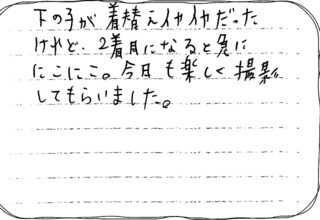 下の子が着替えイヤイヤだった
けれど、2着目になると急に
にこにこ。今日も楽しく撮影
してもらいました。